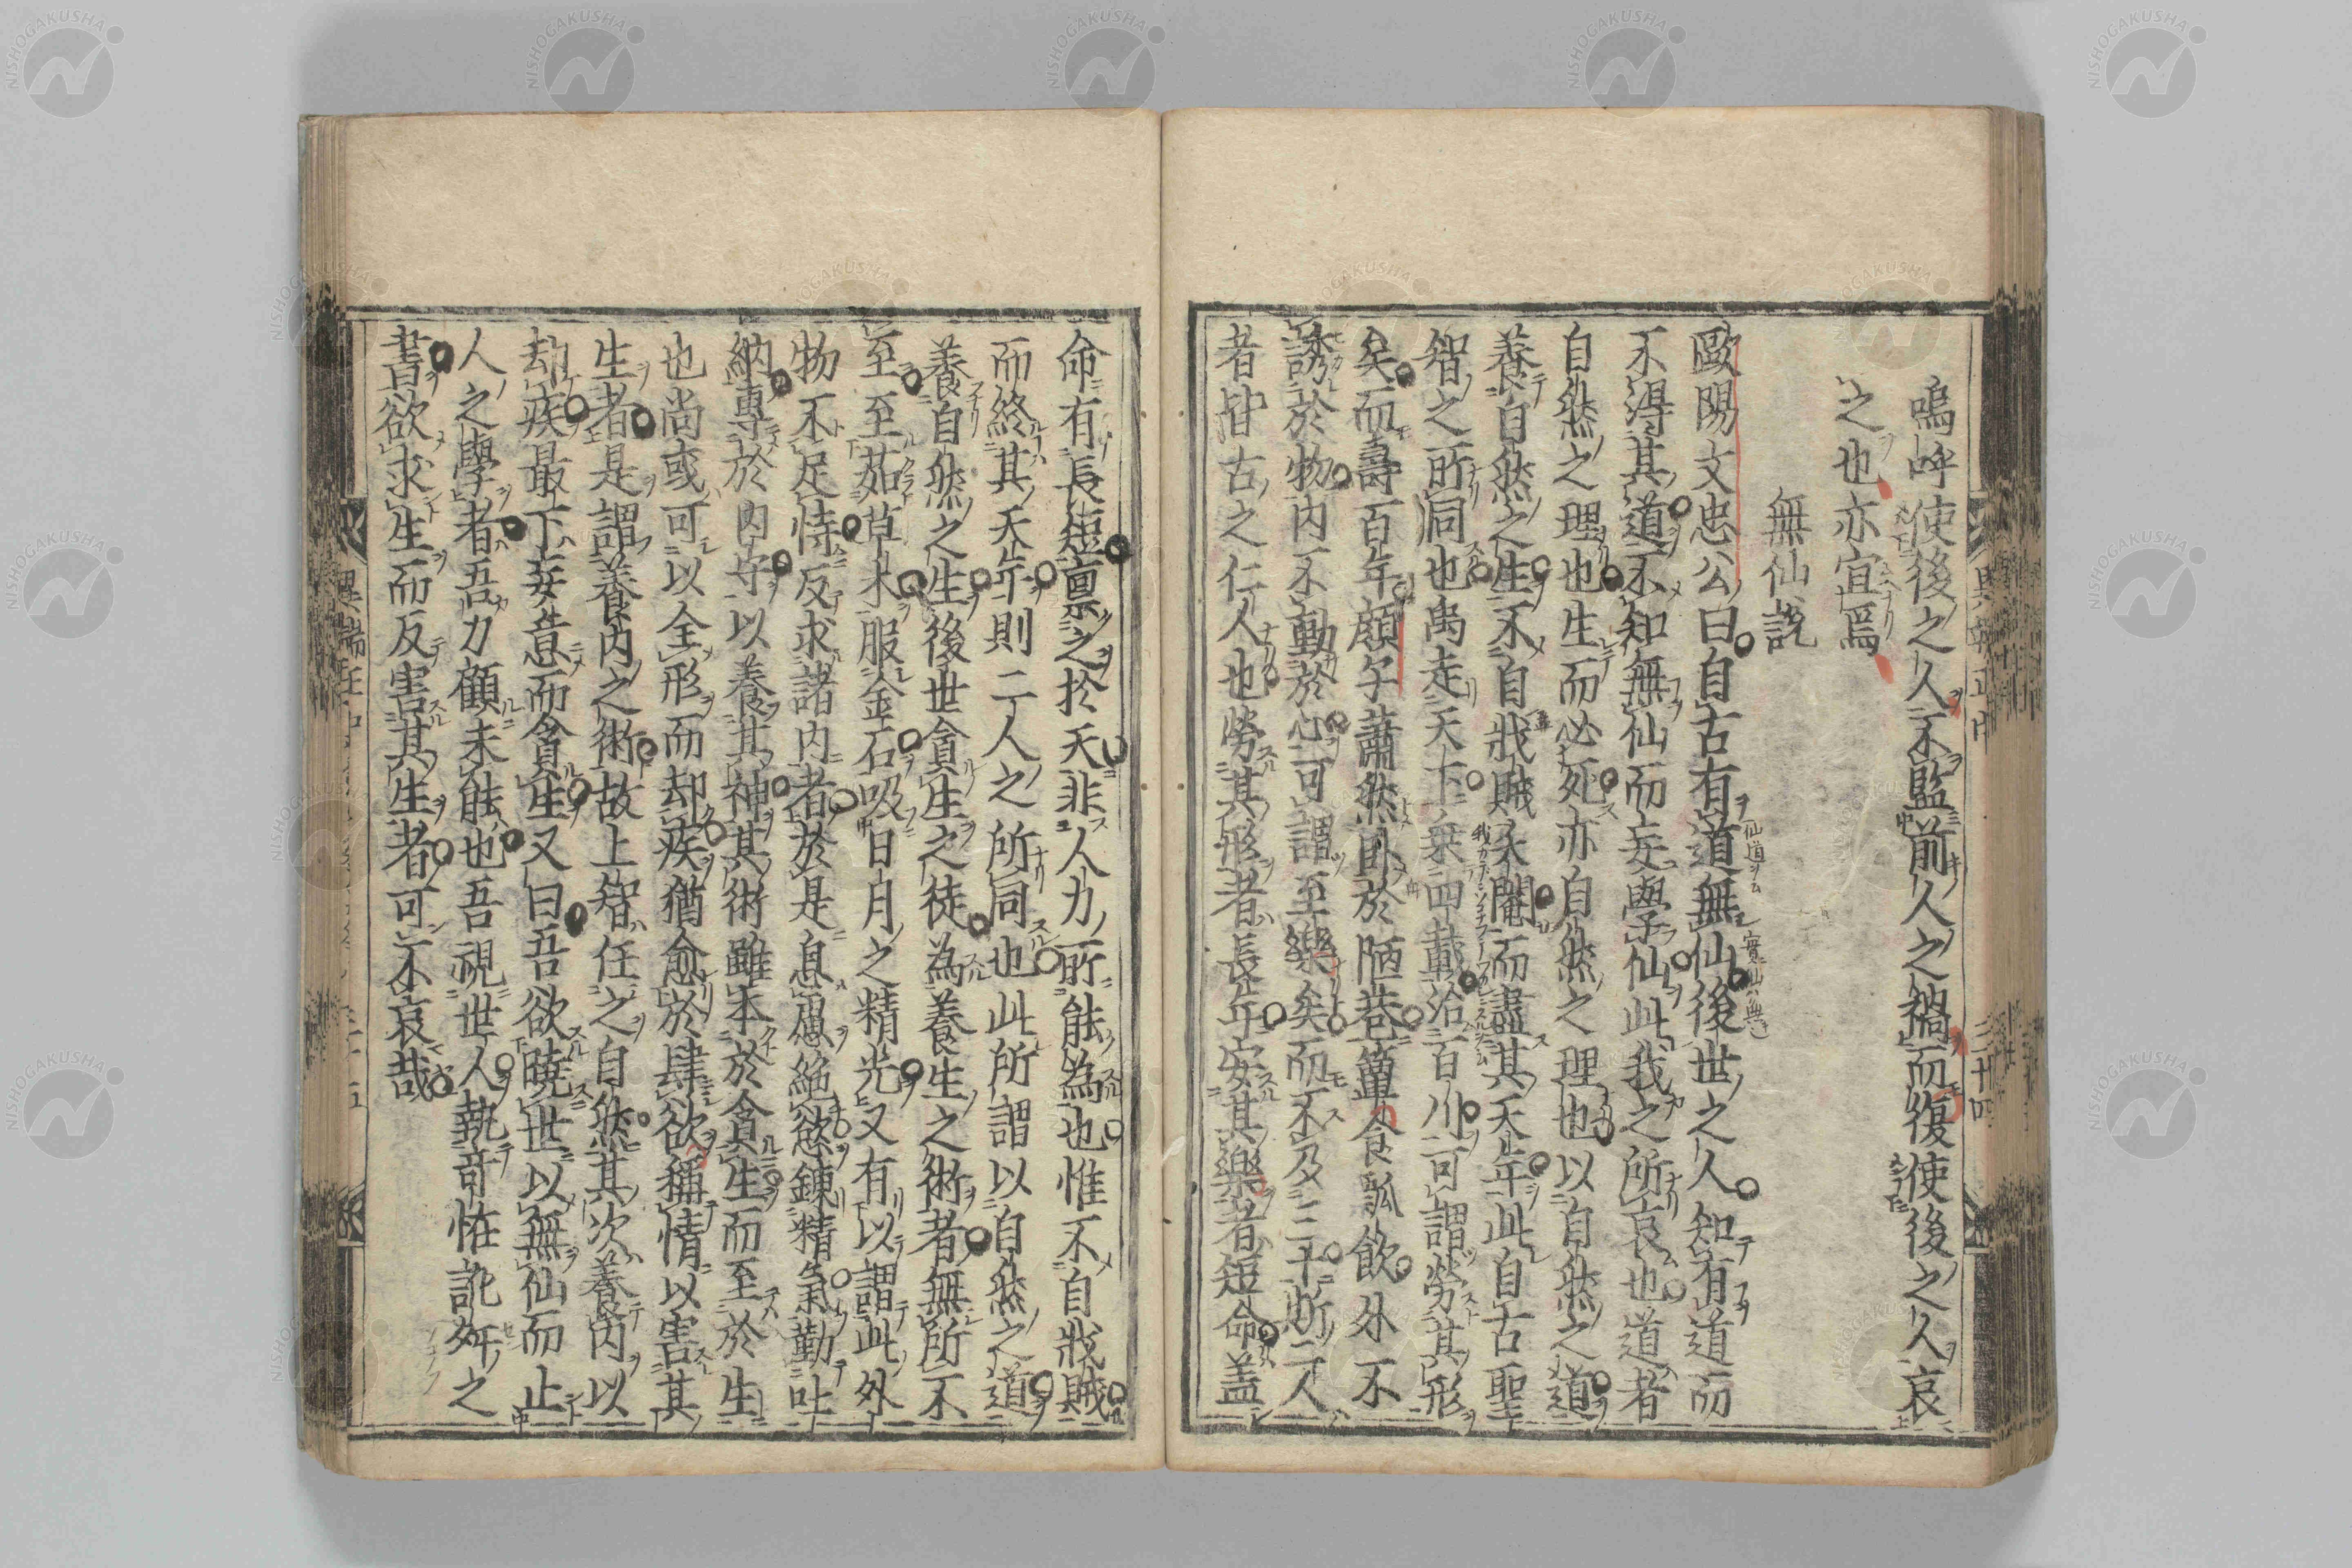 嗚呼使後之人不監前人之禍而復使後之人哀
之也亦宜爲
無仙説
歐陽文忠公曰自古有道無仙後世之人知有道而
不得其道不知無仙而妄學仙此我之所哀也道者
自然之理也生而必死亦自然之理也以自然之道
養自然之生不自戕賊夭閼而盡其天年此自古聖
智之所同也禹走天下乗四載治百川可謂勞其形
矣而壽百年顔子蕭然臥於陋巷簞食瓢飲外不
誘於物内不動於心可謂至樂矣而不及三十斯二人
者皆古之仁人也勞其形者長年安其樂者短命盖
命有長短禀之於天非人力所能為也惟不自戕賊
而終其天年則二人之所同也此所謂以自然之道
養自然之生後世貪生之徒為養生之術者無所不
至至茹草木服金石吸日月之精光又有以謂此外
物不足恃反求諸内者於是息慮絶慾錬精氣勤吐
納專於内守以養其神其術雖本於貪生而至於生
也尚或可以全形而却疾猶愈於肆欲稱情以害其
生者是謂養内之術故上智任之自然其次養内以
却疾最下妄意而貪生又曰吾欲曉世以無仙而止
人之學者吾力顧未能也吾視世人執奇怪訛舛之
書欲求生而反害其生者可不哀哉
異端正中
三十四
NISHOGAKUSHA